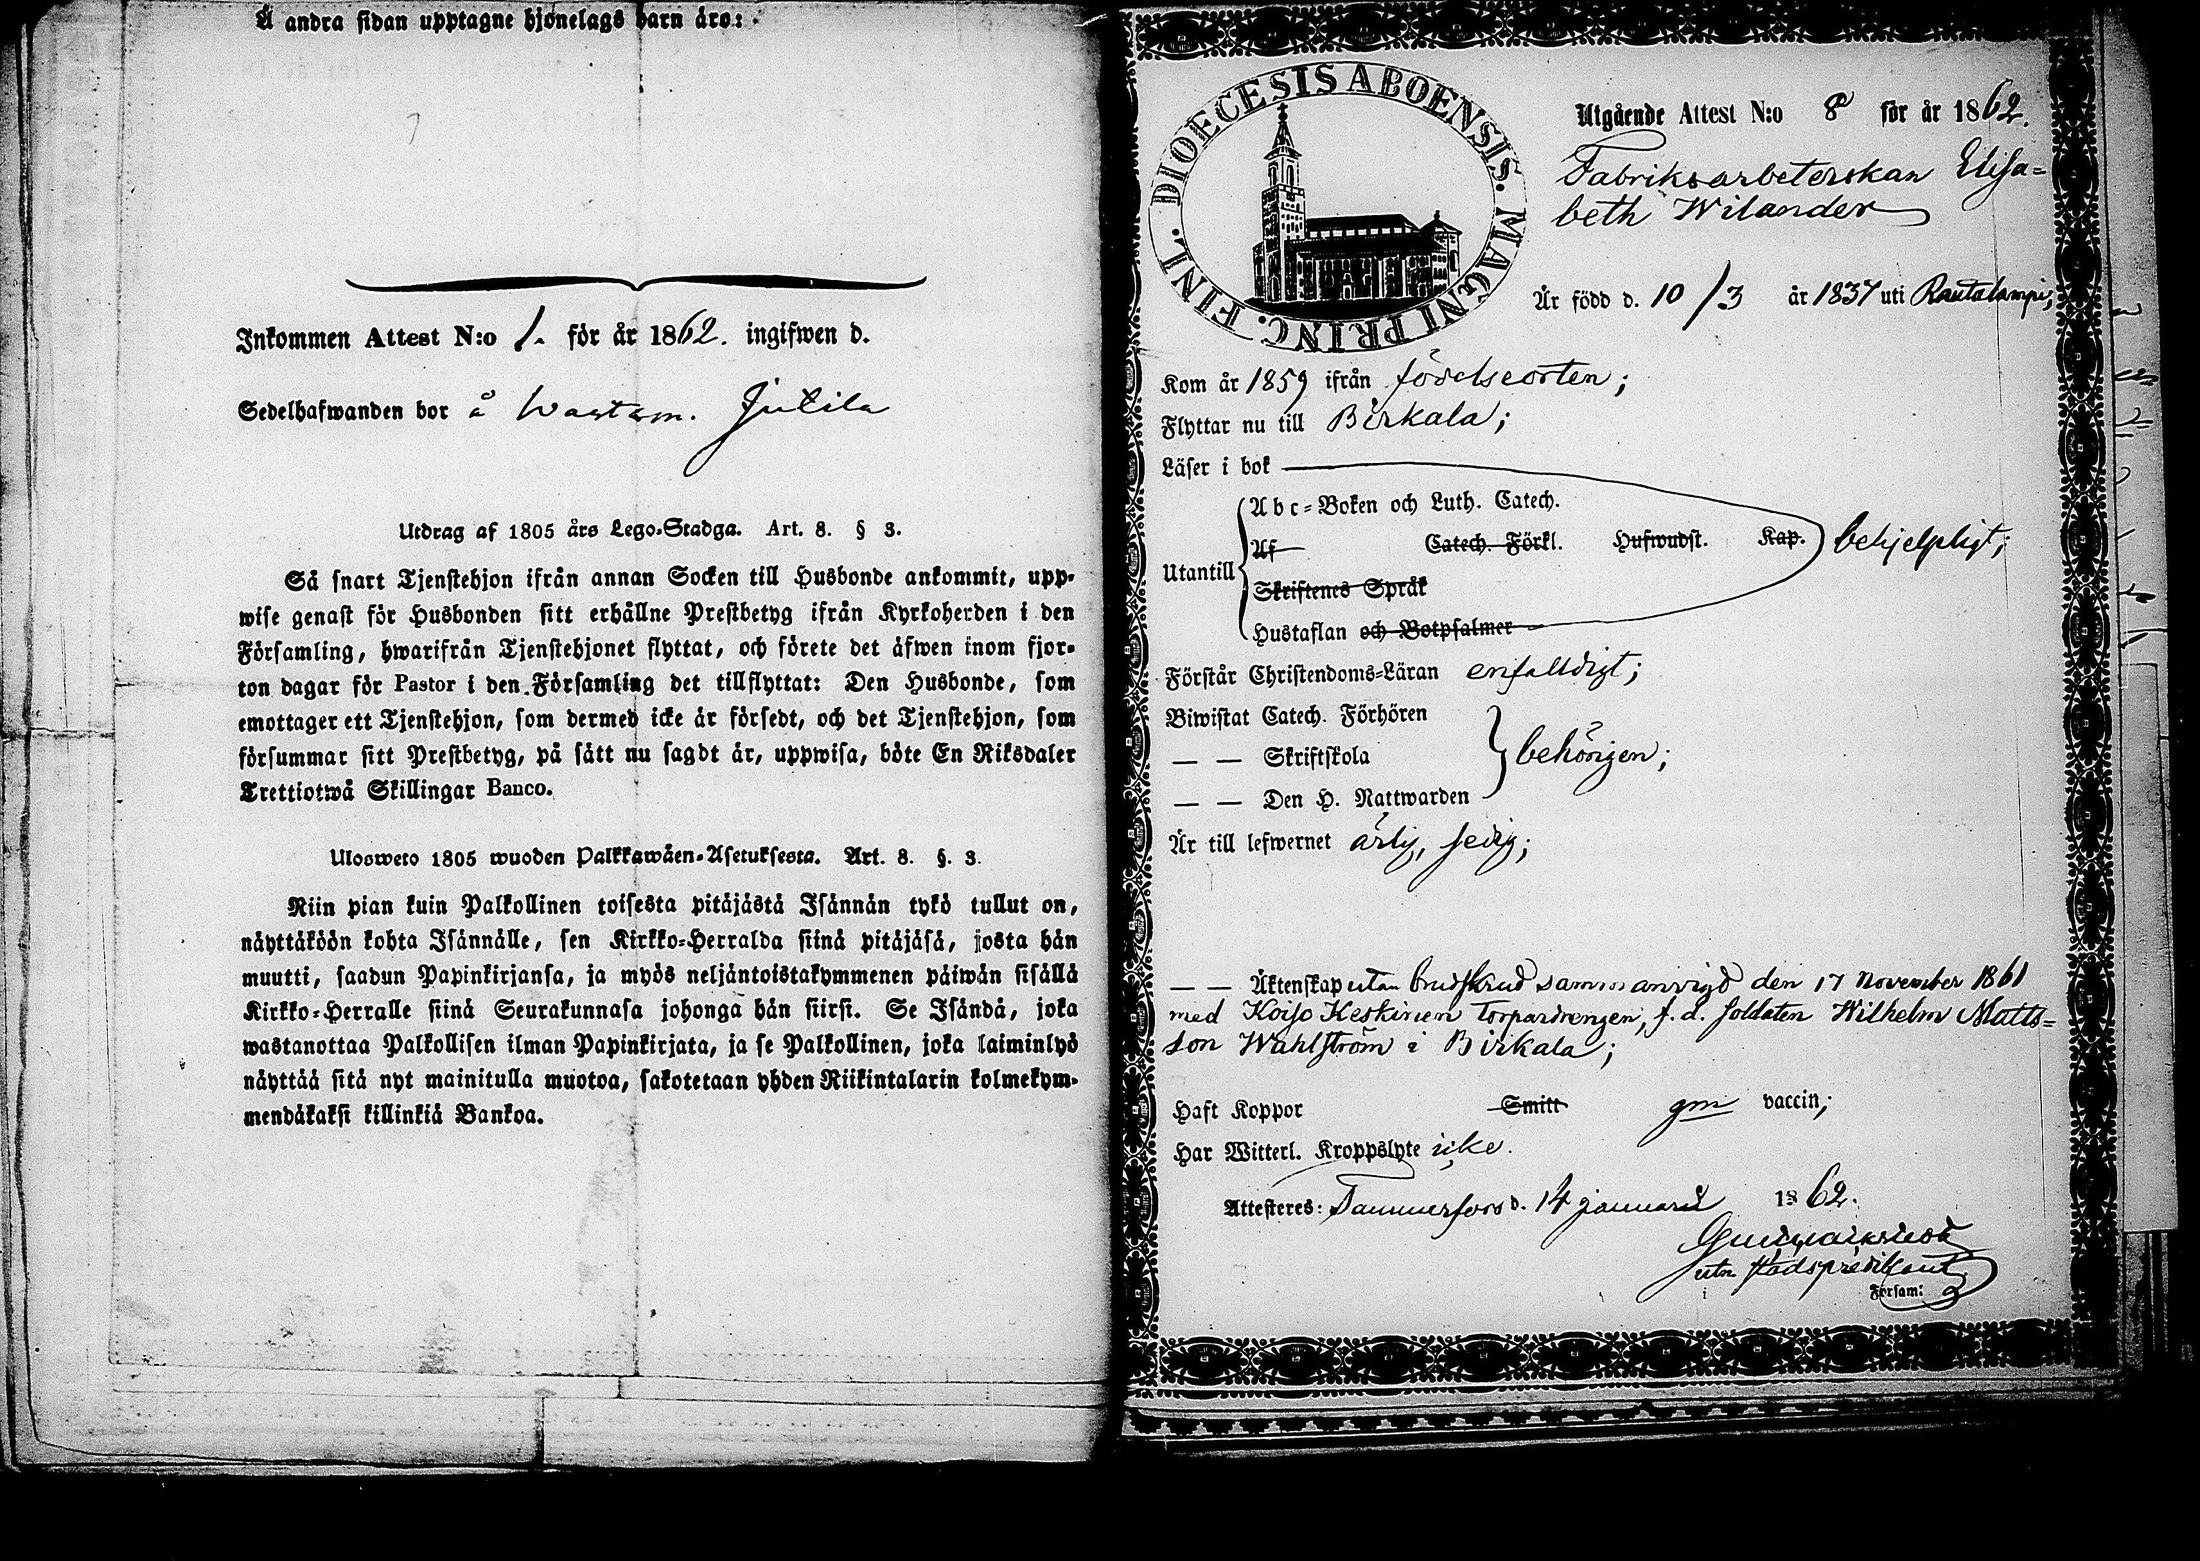 Å andra sidan upptagne hjonelags barn äro:
Inkommen Attest N:o 1. för år 1862. ingifwen d.
Sedelhafwanden bor å Juhila
Utdrag af 1805 års Lego-Stadga. Art. 8. § 3.
Så snart Tjenstehjon ifrån annan Socken till Husbonde ankommit, upp-
wise genast för Husbonden sitt erhållne Prestbetyg ifrån Kyrkoherden i den
Församling, hwarifrån Tjenstehjonet flyttat, och förete det äfwen inom fjor-
ton dagar för Pastor i den Församling det tillflyttat: Den Husbonde, som
emottager ett Tjenstehjon, som dermed icke är försedt, och det Tjenstehjon, som
försummar sitt Prestbetyg, på sätt nu sagdt är, uppwisa, böte En Riksdaler
Trettiotwå Skillingar Banco.
Ulosweto 1805 wuoden Palkkawäen-Asetuksesta. Art. 8. §. 3.
Niin pian kuin Palkollinen toisesta pitäjästä Isännän tykö tullut on,
näyttäköön kohta Isännälle, sen Kirkko-Herralda siinä pitäjäsä, josta hän
muutti, saadun Papinkirjansa, ja myös neljäntoistakymmenen päiwän sisällä
Kirkko-Herralle siinä Seurakunnasa johonga hän siirsi. Se Isändä, joka
wastanottaa Palkollisen ilman Papinkirjata, ja se Palkollinen, joka laiminlyö
näyttää sitä nyt mainitulla muotoa, sakotetaan yhden Riikintalarin kolmekym-
mendäkaksi killinkiä Bankoa.
DIOECESIS ABOENSIS. MAGNI PRINC. FINL.
Utgående Attest N:o 8 för år 1862.
Fabriksarbeterskan Elisa=
beth Wilander
Är född d. 10/3 år 1837 uti Rautalampi;
Kom år 1859 ifrån födelseorten;
Flyttar nu till Birkala;
Läser i bok
Abc=Boken och Luth. Catech.
Utantill Af Catech. Förkl. Hufwudst. Kap. behjelpligt;
Skriftenes Språk
Hustaflan och Botpsalmer
Förstår Christendoms=Läran enfalldigt;
Biwistat Catech. Förhören
— — Skriftskola behörigen;
— — Den H. Nattwarden
Är till lefwernet ärlig, sedig;
— — Äktenskap utan brudskrud sammanvigd den 17 November 1861
med Koiso Keskinen Torpardrengen, f. d. soldaten Wilhelm Matts=
son Wahlström i Birkala;
Haft Koppor Smitt gm vaccin;
Har Witterl. Kroppslyte icke.
Attesteres: Tammerfors d. 14 januari 1862.
stadspredikant
i Forsam: